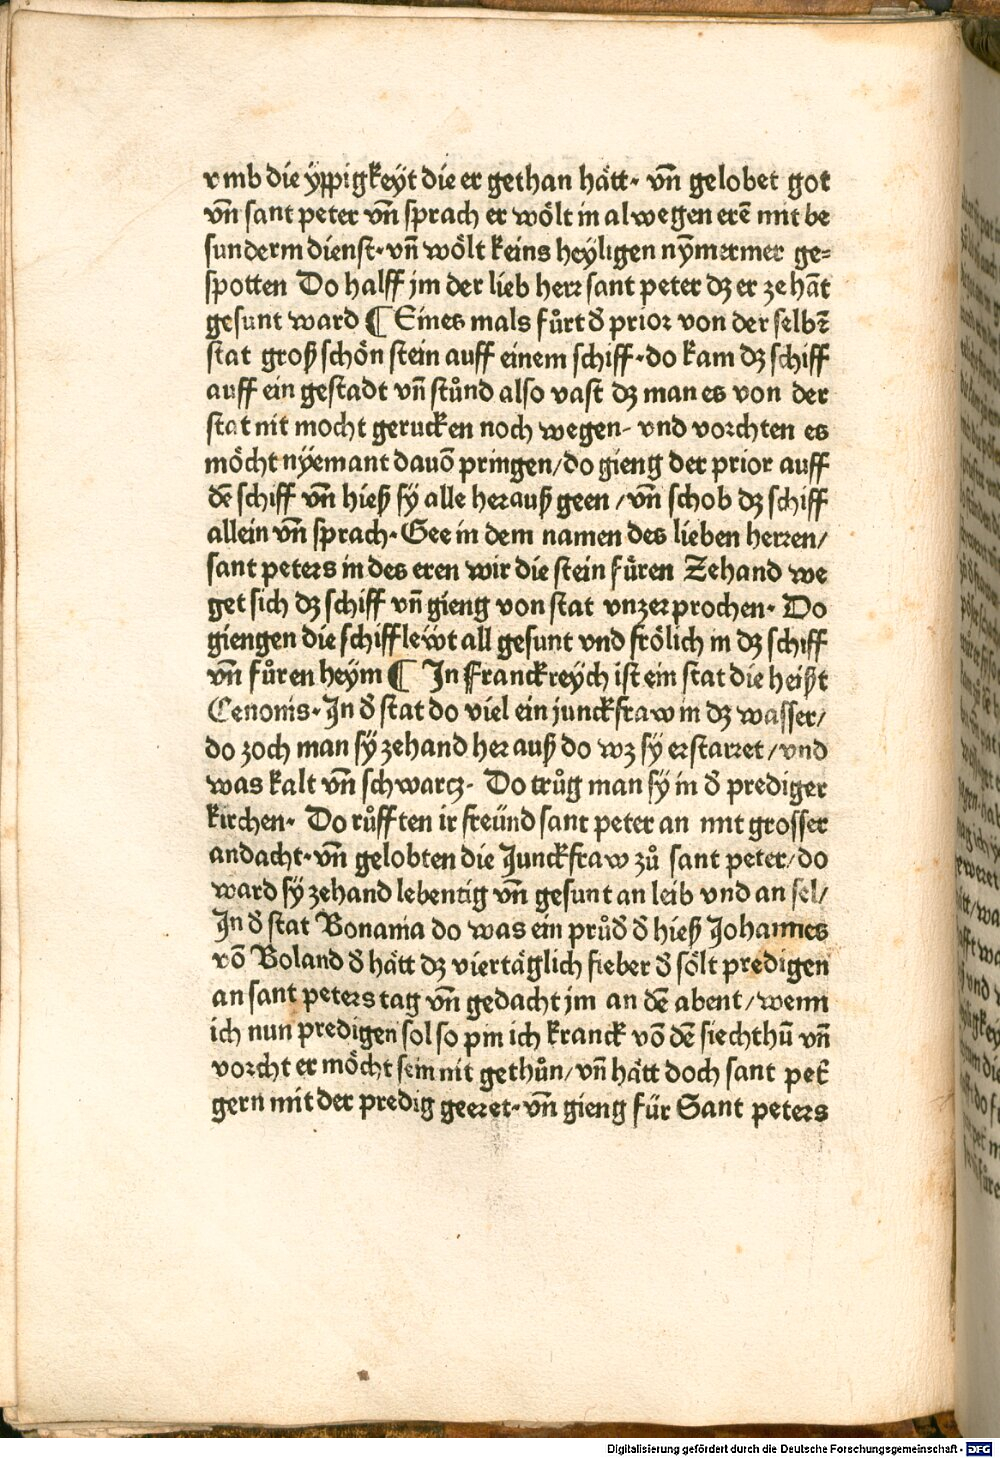 vmb die ÿppigkeÿt die er gethan hätt· vn̄ gelobet got
vn̄ sant peter vn̄ sprach er wölt in alwegen erē mit be
sunderm dienst· vn̄ wölt keins heÿligen nÿmermer ge=
spotten Do halff jm der lieb herr sant peter dz er zehāt
gesunt ward ¶ Eines mals fůrt d̄ prior von der selbē
stat groß schön stein auff einem schiff· do kam dz schiff
auff ein gestadt vn̄ stůnd also vast dz man es von der
stat nit mocht gerucken noch wegen· vnd vorchten es
möcht nÿemant dauō pringen/ do gieng der prior auff
dē schiff vn̄ hieß sÿ alle herauß geen/ vn̄ schob dz schiff
allein vn̄ sprach· Gee in dem namen des lieben herren/
sant peters in des eren wir die stein füren Zehand we
get sich dz schiff vn̄ gieng von stat vnzerprochen· Do
giengen die schifflewt all gesunt vnd frölich in dz schiff
vn̄ fůren heÿm ¶ In Franckreÿch ist ein stat die heißt
Cenonis· In d̄ stat do viel ein junckfraw in dz wasser/
do zoch man sÿ zehand herauß do wz sÿ erstarret/ vnd
was kalt vn̄ schwarcz· Do trůg man sÿ in d̄ prediger
kirchen· Do růfften ir freünd sant peter an mit grosser
andacht· vn̄ gelobten die Junckfraw zů sant peter/ do
ward sÿ zehand lebentig vn̄ gesunt an leib vnd an sel/
In d̄ stat Bonania do was ein průd̄ d̄ hieß Johannes
vō Boland d̄ hätt dz viertäglich fieber d̄ sölt predigen
an sant peters tag vn̄ gedacht jm an dē abent/ wenn
ich nun predigen sol so pin ich kranck vō dē siechthū vn̄
vorcht er möcht sein nit gethůn/ vn̄ hätt doch sant pet̄
gern mit der predig geeret· vn̄ gieng für Sant peters
Digitalisierung gefördert durch die Deutsche Forschungsgemeinschaft - DFG